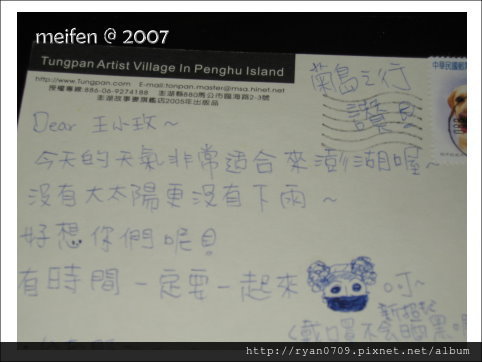 meifen @ 2007
Tungpan Artist Village In Penghu Island
http://www.Tungpan.com E-mail:tonpan.master@msa.hinet.net
授權專線:886-06-9274188 澎湖縣880馬公市臨海路2-3號
澎湖故事妻旗艦店2005年出版品
菊島之行
讚!
中華民國郵票
Dear 王小玫~
今天的天氣非常適合來澎湖喔~
沒有大太陽更沒有下雨~
好想你們呢!
有時間一定要一起來
吖~
新招
(戴口罩不會曬黑
http://ryan0709.pixnet.net/album